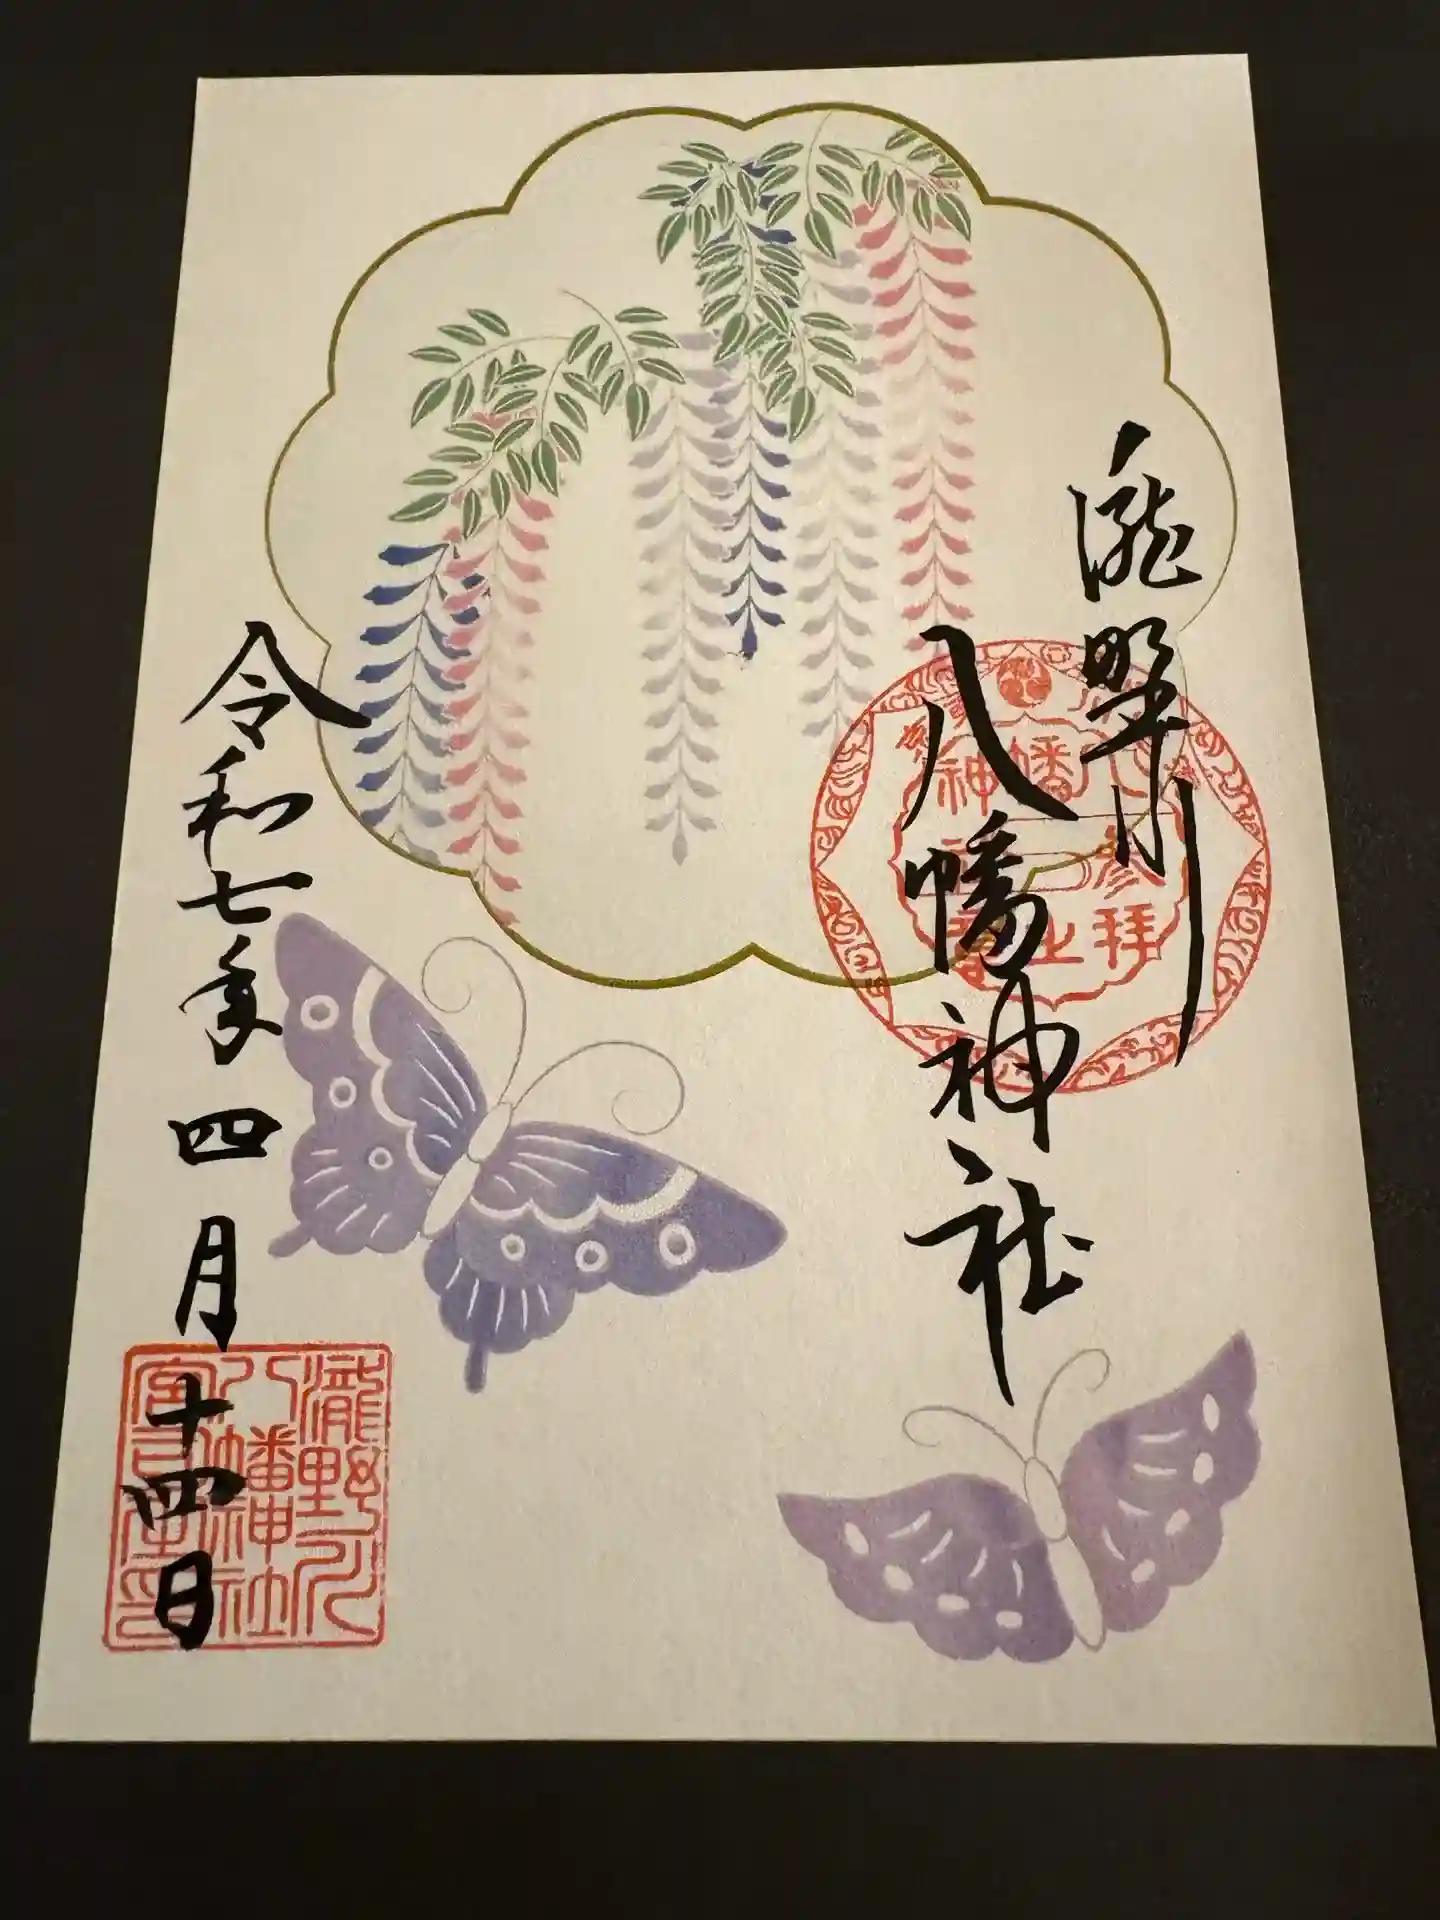 瀧野川
八幡神社
令和七年四月十四日
八幡神社
参拝之
瀧野川
八幡神社
宮司之印